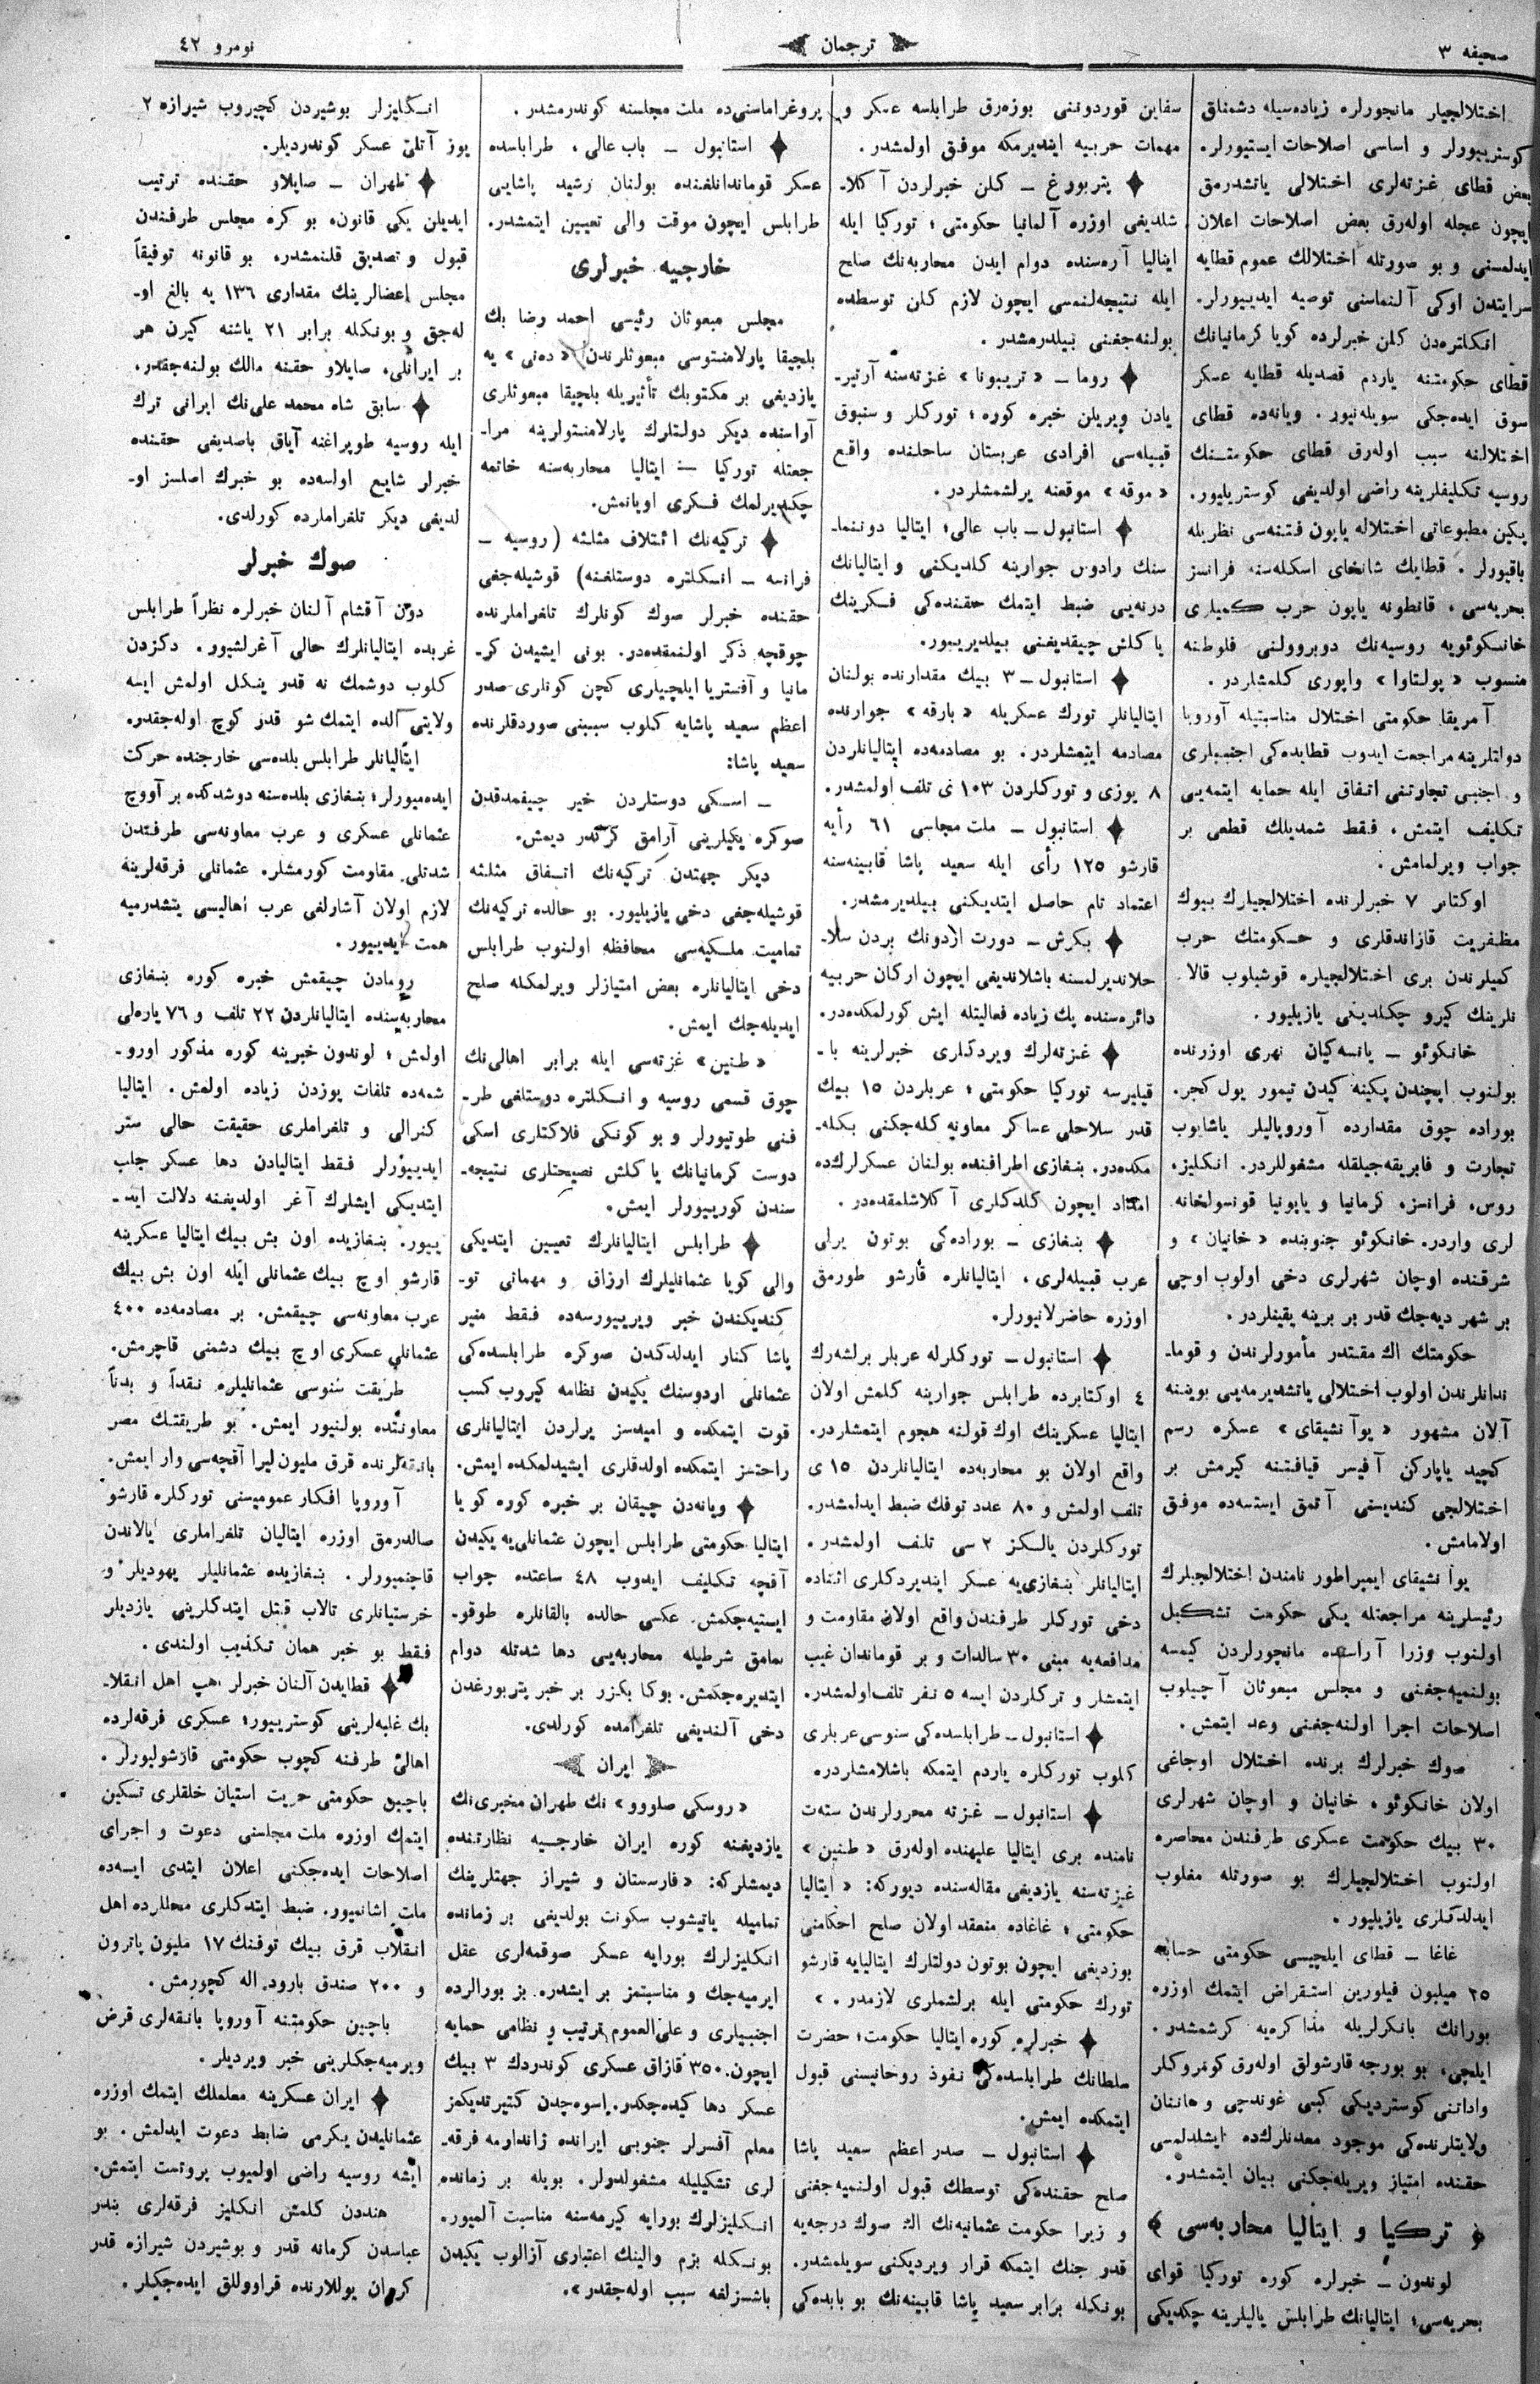 صحیفه ٣
ترجمان
نومرو ٤٢
اختلالجیلر مانجورلره زیاده‌سیله دشمنلق
کوستریپورلر و اساسی اصلاحات ایستیورلر.
بعض قطای غزته‌لری اختلالی یاتشدرمق
ایچون عجله اوله‌رق بعض اصلاحات اعلان
ایدلمسنی و بو صورتله اختلالك عموم قطایه
سرایتدن اوکی آلنماسنی توصیه ایدییورلر.
انکلتره‌دن کلن خبرلرده کویا کرمانیانك
قطای حکومتنه یاردم قصدیله قطایه عسکر
سوق ایده‌جکی سویله‌نیور. ویانه‌ده قطای
اختلالنه سبب اوله‌رق قطای حکومتنك
روسیه تکلیفلرینه راضی اولدیغی کوستریلیور.
پکین مطبوعاتی اختلاله یاپون فتنه‌سی نظریله
باقیورلر. قطایك شانخای اسکله‌سنه فرانسز
بحریه‌سی، قانطونه یاپون حرب کمیلری
خانسکوئویه روسیه‌نك دوبروولنی فلوطنه
منسوب «پولتاوا» واپوری کلمشلردر.
آمریقا حکومتی اختلال مناسبتیله آوروپا
دولتلرینه مراجعت ایدوب قطایده‌کی اجنبیلری
و اجنبی تجارتنی اتفاق ایله حمایه ایتمه‌یی
تکلیف ایتمش، فقط شمدیلك قطعی بر
جواب ویرلمامش.
اوکتابر ٧ خبرلرنده اختلالجیلرك بیوك
مظفریت قازاندقلری و حکومتك حرب
کمیلرندن بری اختلالجیلره قوشیلوب قالا
نلرینك کیرو چکلدیکی یازیلیور.
خانکوئو – یانسه‌کیان نهری اوزرنده
بولنوب ایچندن پکینه کیدن تیمور یول کچر.
بوراده چوق مقدارده آوروپالیلر یاشایوب
تجارت و فابریقه‌جیلقله مشغوللردر. انکلیز،
روس، فرانسز، کرمانیا و یاپونیا قونسولخانه
لری واردر. خانکوئو جنوبنده «خانیان» و
شرقنده اوچان شهرلری دخی اولوب اوچی
بر شهر دیه‌جك قدر بر برینه یقینلردر.
حکومتك اك مقتدر مأمورلرندن و قوما-
ندانلرندن اولوب اختلالی یاتشدیرمه‌یی بویننه
آلان مشهور «یوآ نشیقای» عسکره رسم
کچید یاپارکن آفیسر قیافتنه کیرمش بر
اختلالجی کندیسنی آتمق ایستسه‌ده موفق
اولامامش.
یوآ نشیقای ایمپراطور نامندن اختلالجیلرك
رئیسلرینه مراجعتله یکی حکومت تشکیل
اولنوب وزرا آراسنده مانچورلردن کیمسه
بولنمیه‌جغنی و مجلس مبعوثان آچیلوب
اصلاحات اجرا اولنه‌جغنی وعد ایتمش.
صوك خبرلرك برنده اختلال اوجاغی
اولان خانکوئو، خانیان و اوچان شهرلری
٣٠ بیك حکومت عسکری طرفندن محاصره
اولنوب اختلالجیلرك بو صورتله مغلوب
ایدلدکلری یازیلیور.
غاغا – قطای ایلچیسی حکومتی حسابنه
٢٥ میلیون فیلورین استقراض ایتمك اوزره
بورانك بانکرلریله مذاکره‌یه کرشمشدر.
ایلچی، بو بورجه قارشولق اوله‌رق کومروکلر
وادانی کوستردیکی کبی غوندچی و هاننان
ولایتلرنده‌کی موجود معدنلرك‌ده ایشلدلمسی
حقنده امتیاز ویریله‌جکنی بیان ایتمشدر.
﴿ ترکیا و ایتالیا محاربه‌سی ﴾
لوندون – خبرلره کوره تورکیا قوای
بحریه‌سی؛ ایتالیانك طرابلس یالیلرینه چکدیکی
سفاین قوردوننی بوزه‌رق طرابلسه عسکر و
مهمات حربیه ایتدیرمکه موفق اولمشدر.
پتربورغ – کلن خبرلردن آکلا-
شلدیغی اوزره آلمانیا حکومتی؛ تورکیا ایله
ایتالیا آره‌سنده دوام ایدن محاربه‌نك صلح
ایله نتیجه‌لنمسی ایچون لازم کلن توسطده
بولنه‌جغنی بیلدرمشدر.
روما – «تریبونا» غزته‌سنه آرتیر-
یادن ویریلن خبره کوره؛ تورکلر و سنیوق
قبیله‌سی افرادی عربستان ساحلنده واقع
«موقه» موقعنه یرلشمشلردر.
استانبول – باب عالی؛ ایتالیا دوننما-
سنك رادوس جوارینه کلدیکنی و ایتالیانك
درنه‌یی ضبط ایتمك حقنده‌کی فکرینك
یاکلش چیقدیغنی بیلدیریپور.
استانبول – ٣ بیك مقدارنده بولنان
ایتالیانلر تورك عسکریله «بارقه» جوارنده
مصادمه ایتمشلردر. بو مصادمه‌ده ایتالیانلردن
٨ یوزی و تورکلردن ١٠٣ ی تلف اولمشدر.
استانبول – ملت مجلسی ٦١ رأیه
قارشو ١٢٥ رأی ایله سعید پاشا قابینه‌سنه
اعتماد تام حاصل ایتدیکنی بیلدیرمشدر.
بکرش – دورت اردونك بردن سلا-
حلاندیرلمسنه باشلاندیغی ایچون ارکان حربیه
دائره‌سنده پك زیاده فعالیتله ایش کورلمکده‌در.
غزته‌لرك ویردکلری خبرلرینه با-
قیلیرسه تورکیا حکومتی؛ عربلردن ١٥ بیك
قدر سلاحلی عساکر معاونه کله‌جکنی بکله-
مکده‌در. بنغازی اطرافنده بولنان عسکرلرك‌ده
امداد ایچون کلدکلری آکلاشلمقده‌در.
بنغازی – بوراده‌کی بوتون یرلی
عرب قبیله‌لری، ایتالیانلره قارشو طورمق
اوزره حاضرلانیورلر.
استانبول – تورکلرله عربلر برلشه‌رك
٤ اوکتابرده طرابلس جوارینه کلمش اولان
ایتالیا عسکرینك اوك قولنه هجوم ایتمشلردر.
واقع اولان بو محاربه‌ده ایتالیانلردن ١٥ ی
تلف اولمش و ٨٠ عدد توفك ضبط ایدلمشدر.
تورکلردن یالکز ٢ سی تلف اولمشدر.
ایتالیانلر بنغازی‌یه عسکر ایندیردکلری اثناده
دخی تورکلر طرفندن واقع اولان مقاومت و
مدافعه‌یه مبنی ٣٠ سالدات و بر قوماندان غیب
ایتمشلر و ترکلردن ایسه ٥ نفر تلف اولمشدر.
استانبول – طرابلسده‌کی سنوسی عربلری
کلوب تورکلره یاردم ایتمکه باشلامشلردر.
استانبول – غزته محررلرندن ستەت
نامنده بری ایتالیا علیهنده اوله‌رق «طنین»
غزته‌سنه یازدیغی مقاله‌سنده دیورکه: «ایتالیا
حکومتی؛ غاغاده منعقد اولان صلح احکامنی
بوزدیغی ایچون بوتون دولتلرك ایتالیایه قارشو
تورك حکومتی ایله برلشملری لازمدر.»
خبرلره کوره ایتالیا حکومت؛ حضرت
سلطانك طرابلسده‌کی نفوذ روحانیسنی قبول
ایتمکده ایمش.
استانبول – صدر اعظم سعید پاشا
صلح حقنده‌کی توسطك قبول اولنمیه‌جغنی
و زیرا حکومت عثمانیه‌نك اك صوك درجه‌یه
قدر جنك ایتمکه قرار ویردیکنی سویلمشدر.
بونکله برابر سعید پاشا قابینه‌نك بو بابده‌کی
پروغراماسنی‌ده ملت مجلسنه کوندرمشدر.
استانبول – باب عالی، طرابلسده
عسکر قوماندانلغنده بولنان رشید پاشایی
طرابلس ایچون موقت والی تعیین ایتمشدر.
خارجیه خبرلری
مجلس مبعوثان رئیسی احمد رضا بك
بلجیقا پارلامنتوسی مبعوثلرندن «ده‌نی» یه
یازدیغی بر مکتوبك تأثیریله بلجیقا مبعوثلری
آراسنده دیکر دولتلرك پارلامنتولرینه مرا-
جعتله تورکیا – ایتالیا محاربه‌سنه خاتمه
چکدیرلمك فکری اویانمش.
ترکیه‌نك ائتلاف مثلثه (روسیه –
فرانسه – انکلتره دوستلغنه) قوشیله‌جغی
حقنده خبرلر صوك کونلرك تلغراملرنده
چوقچه ذکر اولنمقده‌در. بونی ایشیدن کر-
مانیا و آفستریا ایلچیلری کچن کونلری صدر
اعظم سعید پاشایه کلوب سببنی صوردقلرنده
سعید پاشا:
– اسکی دوستلردن خیر چیقمدقدن
صوکره یکیلرینی آرامق کرکدر دیمش.
دیکر جهتدن ترکیه‌نك اتفاق مثلثه
قوشیله‌جغی دخی یازیلیور. بو حالده ترکیه‌نك
تمامیت ملکیه‌سی محافظه اولنوب طرابلس
دخی ایتالیانلره بعض امتیازلر ویرلمکله صلح
ایدیله‌جك ایمش.
«طنین» غزته‌سی ایله برابر اهالی‌نك
چوق قسمی روسیه و انکلتره دوستلغی طر-
فنی طوتیورلر و بو کونکی فلاکتلری اسکی
دوست کرمانیانك یاکلش نصیحتلری نتیجه-
سندن کورییورلر ایمش.
طرابلس ایتالیانلرك تعیین ایتدیکی
والی کویا عثمانلیلرك ارزاق و مهماتی تو-
کندیکندن خبر ویرییورسه‌ده فقط منیر
پاشا کنار ایدلدکدن صوکره طرابلسده‌کی
عثمانلی اردوسنك یکیدن نظامه کیروب کسب
قوت ایتمکده و امیدسز یرلردن ایتالیانلری
راحتسز ایتمکده اولدقلری ایشیدلمکده ایمش.
ویانه‌دن چیقان بر خبره کوره کویا
ایتالیا حکومتی طرابلس ایچون عثمانلی‌یه یکیدن
آقچه تکلیف ایدوب ٤٨ ساعتده جواب
ایستیه‌جکمش. عکسی حالده بالقانلره طوقو-
نمامق شرطیله محاربه‌یی دها شدتله دوام
ایتدیره‌جکمش. بوکا بکزر بر خبر پتربورغدن
دخی آلندیغی تلغرامده کورلدی.
ایران
«روسکی صلووو» نك طهران مخبری‌نك
یازدیغنه کوره ایران خارجیه نظارتنده
دیمشلرکه: «فارسستان و شیراز جهتلرینك
تمامیله یاتیشوب سکونت بولدیغی بر زمانده
انکلیزلرك بورایه عسکر صوقمه‌لری عقل
ایرمیه‌جك و مناسبتمز بر ایشدر. بز بورالرده
اجنبیلری و علی‌العموم ترتیب و نظامی حمایه
ایچون ٣٥٠ قازاق عسکری کوندردك ٣ بیك
عسکر دها کیده‌جکدر. اسوه‌چدن کتیرتدیکمز
معلم آفسرلر جنوبی ایرانده ژاندارمه فرقه-
لری تشکیلیله مشغولدرلر. بویله بر زمانده
انکلیزلرك بورایه کیرمه‌سنه مناسبت آلمیور.
بونکله بزم والینك اعتباری آزالوب یکیدن
باشسزلغه سبب اوله‌جقدر».
انکلیزلر بوشیردن کچیروب شیرازه ٢
یوز آتلی عسکر کوندردیلر.
طهران – صایلاو حقنده ترتیب
ایدیلن یکی قانون، بو کره مجلس طرفندن
قبول و تصدیق قلنمشدر. بو قانونه توفیقاً
مجلس اعضالرینك مقداری ١٣٦ یه بالغ او-
له‌جق و بونکله برابر ٢١ یاشنه کیرن هر
بر ایرانلی، صایلاو حقنه مالك بولنه‌جقدر.
سابق شاه محمد علی‌نك ایرانی ترك
ایله روسیه طوپراغنه آیاق باصدیغی حقنده
خبرلر شایع اولسه‌ده بو خبرك اصلسز او-
لدیغی دیکر تلغراملرده کورلدی.
صوك خبرلر
دون آقشام آلنان خبرلره نظراً طرابلس
غربده ایتالیانلرك حالی آغرلشیور. دکزدن
کلوب دوشمك نه قدر ینکل اولمش ایسه
ولایتی الده ایتمك شو قدر کوچ اوله‌جقدر.
ایتالیانلر طرابلس بلده‌سی خارجنده حرکت
ایده‌میورلر؛ بنغازی بلده‌سنه دوشدکده بر آووچ
عثمانلی عسکری و عرب معاونه‌سی طرفندن
شدتلی مقاومت کورمشلر. عثمانلی فرقه‌لرینه
لازم اولان آشارلغی عرب اهالیسی یتشدرمیه
همت ایدییور.
رومادن چیقمش خبره کوره بنغازی
محاربه‌سنده ایتالیانلردن ٢٢ تلف و ٧٦ یاره‌لی
اولمش؛ لوندون خبرینه کوره مذکور اورو-
شمه‌ده تلفات یوزدن زیاده اولمش. ایتالیا
کنرالی و تلغراملری حقیقت حالی ستر
ایدییورلر فقط ایتالیادن دها عسکر جلب
ایتدیکی ایشلرك آغر اولدیغنه دلالت اید-
ییور. بنغازیده اون بش بیك ایتالیا عسکرینه
قارشو اوچ بیك عثمانلی ایله اون بش بیك
عرب معاونه‌سی چیقمش. بر مصادمه‌ده ٤٠٠
عثمانلی عسکری اوچ بیك دشمنی قاچرمش.
طریقت سنوسی عثمانلیلره نقداً و بدناً
معاونتده بولنیور ایمش. بو طریقتك مصر
بانقه‌لرنده قرق ملیون لیرا آقچه‌سی وار ایمش.
آوروپا افکار عمومیسنی تورکلره قارشو
صالدرمق اوزره ایتالیان تلغراملری یالاندن
قاچنمیورلر. بنغازیده عثمانلیلر یهودیلر و
خرستیانلری تالاب قتل ایتدکلرینی یازدیلر
فقط بو خبر همان تکذیب اولندی.
قطایدن آلنان خبرلر هپ اهل انقلا-
بك غلبه‌لرینی کوستریپور؛ عسکری فرقه‌لرده
اهالی طرفنه کچوب حکومتی قارشولیورلر.
باچین حکومتی حریت استیان خلقلری تسکین
ایتمك اوزره ملت مجلسنی دعوت و اجرای
اصلاحات ایده‌جکنی اعلان ایتدی ایسه‌ده
ملت اشانمیور. ضبط ایتدکلری محللرده اهل
انقلاب قرق بیك توفنك ١٧ ملیون پاترون
و ٢٠٠ صندق بارود اله کچورمش.
باچین حکومتنه آوروپا بانقه‌لری قرض
ویرمیه‌جکلرینی خبر ویردیلر.
ایران عسکرینه معلملك ایتمك اوزره
عثمانلیدن یکرمی ضابط دعوت ایدلمش. بو
ایشه روسیه راضی اولمیوب پروتست ایتمش.
هنددن کلمش انکلیز فرقه‌لری بندر
عباسدن کرمانه قدر و بوشیردن شیرازه قدر
کرمان یوللارنده قراووللق ایده‌جکلر.